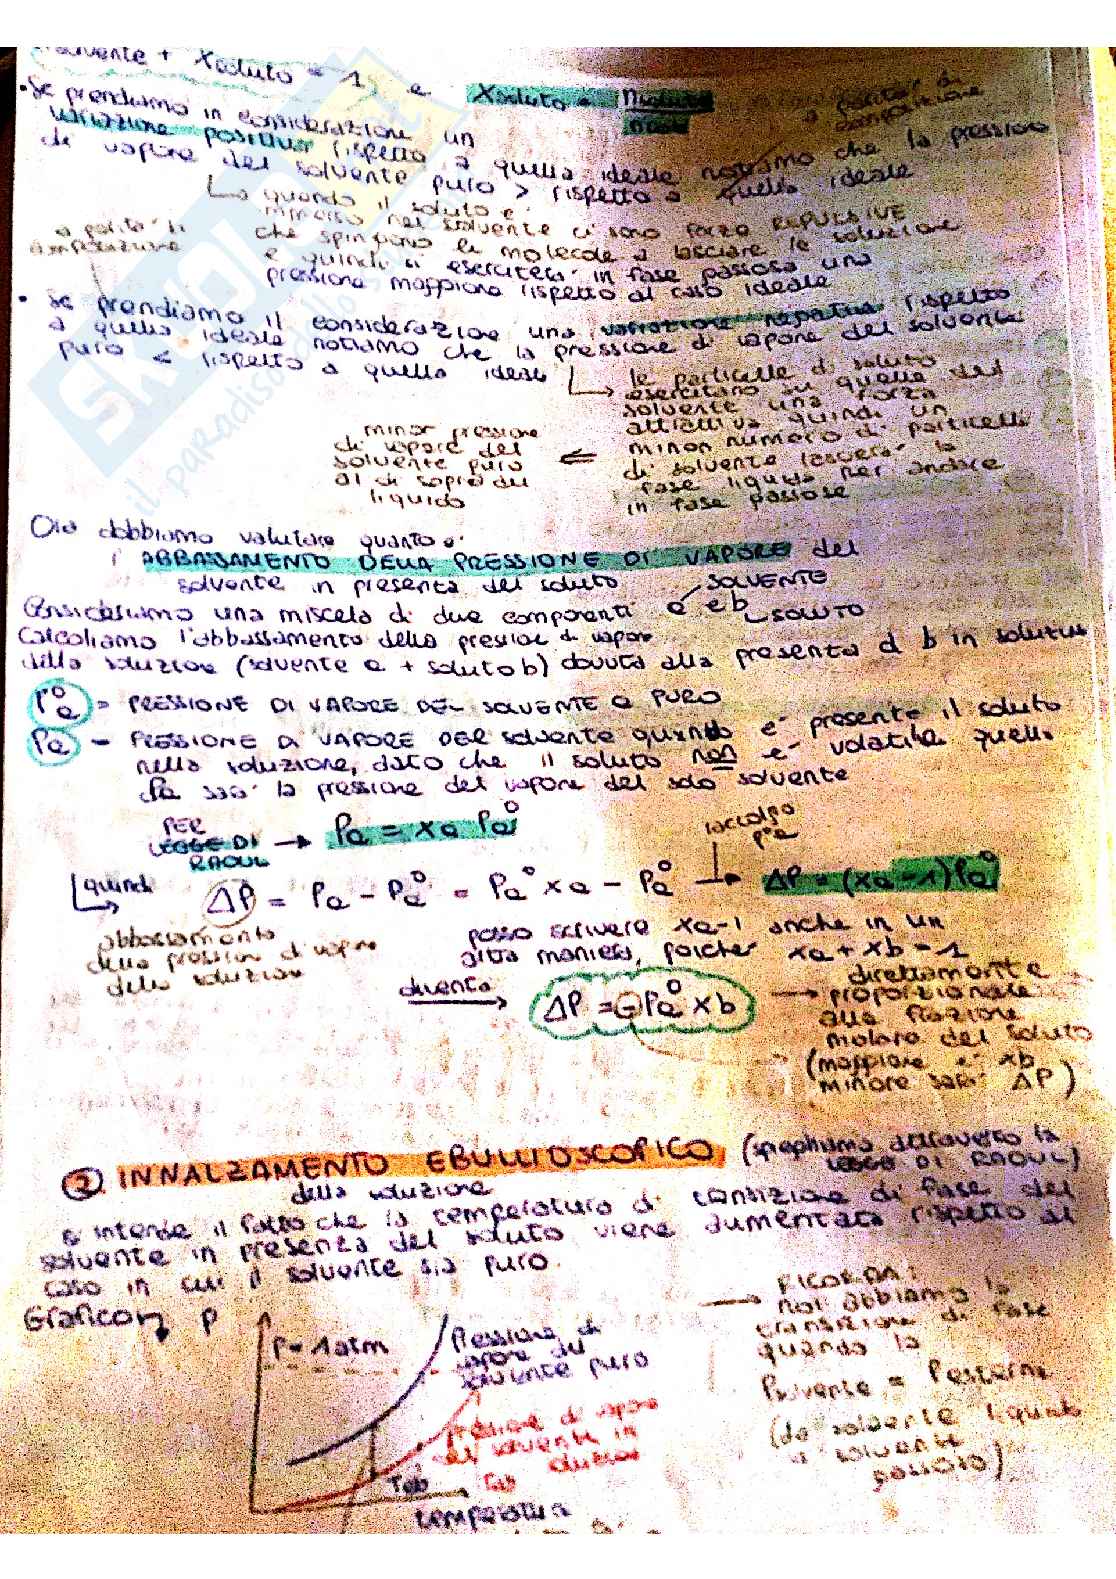 solvente + Xsoluto = 1 e Xsoluto = nsoluto
ntot
• Se prendiamo in considerazione un a parità di
composizione
variazione positiva rispetto a quella ideale notiamo che la pressione
di vapore del solvente puro > rispetto a quella ideale
quando il soluto è
immerso nel solvente ci sono forze REPULSIVE
a parità di
composizione
che spingono le molecole a lasciare la soluzione
e quindi si eserciterà in fase gassosa una
pressione maggiore rispetto al caso ideale
• Se prendiamo il considerazione una variazione negativa rispetto
a quella ideale notiamo che la pressione di vapore del solvente
puro < rispetto a quella ideale
le particelle di soluto
esercitano su quelle del
solvente una forza
attrattiva quindi un
minor numero di particelle
di solvente lascerà la
fase liquida per andare
in fase gassosa
minor pressione
di vapore del
solvente puro
al di sopra del
liquido
Ora dobbiamo valutare quanto è
l'ABBASSAMENTO DELLA PRESSIONE DI VAPORE del
solvente in presenza del soluto
Consideriamo una miscela di due componenti a e b
SOLVENTE
SOLUTO
Calcoliamo l'abbassamento della pressione di vapore
della soluzione (solvente a + soluto b) dovuta alla presenza d b in soluzione
Pa° = PRESSIONE DI VAPORE DEL SOLVENTE a PURO
Pa = PRESSIONE DI VAPORE DEL solvente quando è presente il soluto
nella soluzione, dato che il soluto non è volatile quella
Pa sarà la pressione del vapore del solo solvente
PER
LEGGE DI
RAOUL → Pa = xa Pa°
raccolgo
P°a
quindi ΔP = Pa - Pa° = Pa° xa - Pa° → ΔP = (xa - 1)Pa°
abbassamento
della pressione di vapore
della soluzione
posso scrivere xa-1 anche in un
altra maniera, poiché xa + xb = 1
diventa → ΔP = -Pa° xb → direttamente
proporzionale
alla frazione
molare del soluto
(maggiore è xb
minore sarà ΔP)
2 INNALZAMENTO EBULLIOSCOPICO (spieghiamo attraverso la
LEGGE DI RAOUL)
della soluzione
si intende il fatto che la temperatura di transizione di fase del
solvente in presenza del soluto viene aumentata rispetto al
caso in cui il solvente sia puro.
Grafico P
P = 1 atm
Pressione di
vapore del
solvente puro
Pressione di vapore
del solvente in
soluzione
Teb
Teb
temperatura
→ RICORDA:
noi abbiamo la
transizione di fase
quando la
Psolvente = Pesterna
(da solvente liquido
a solvente
gassoso)